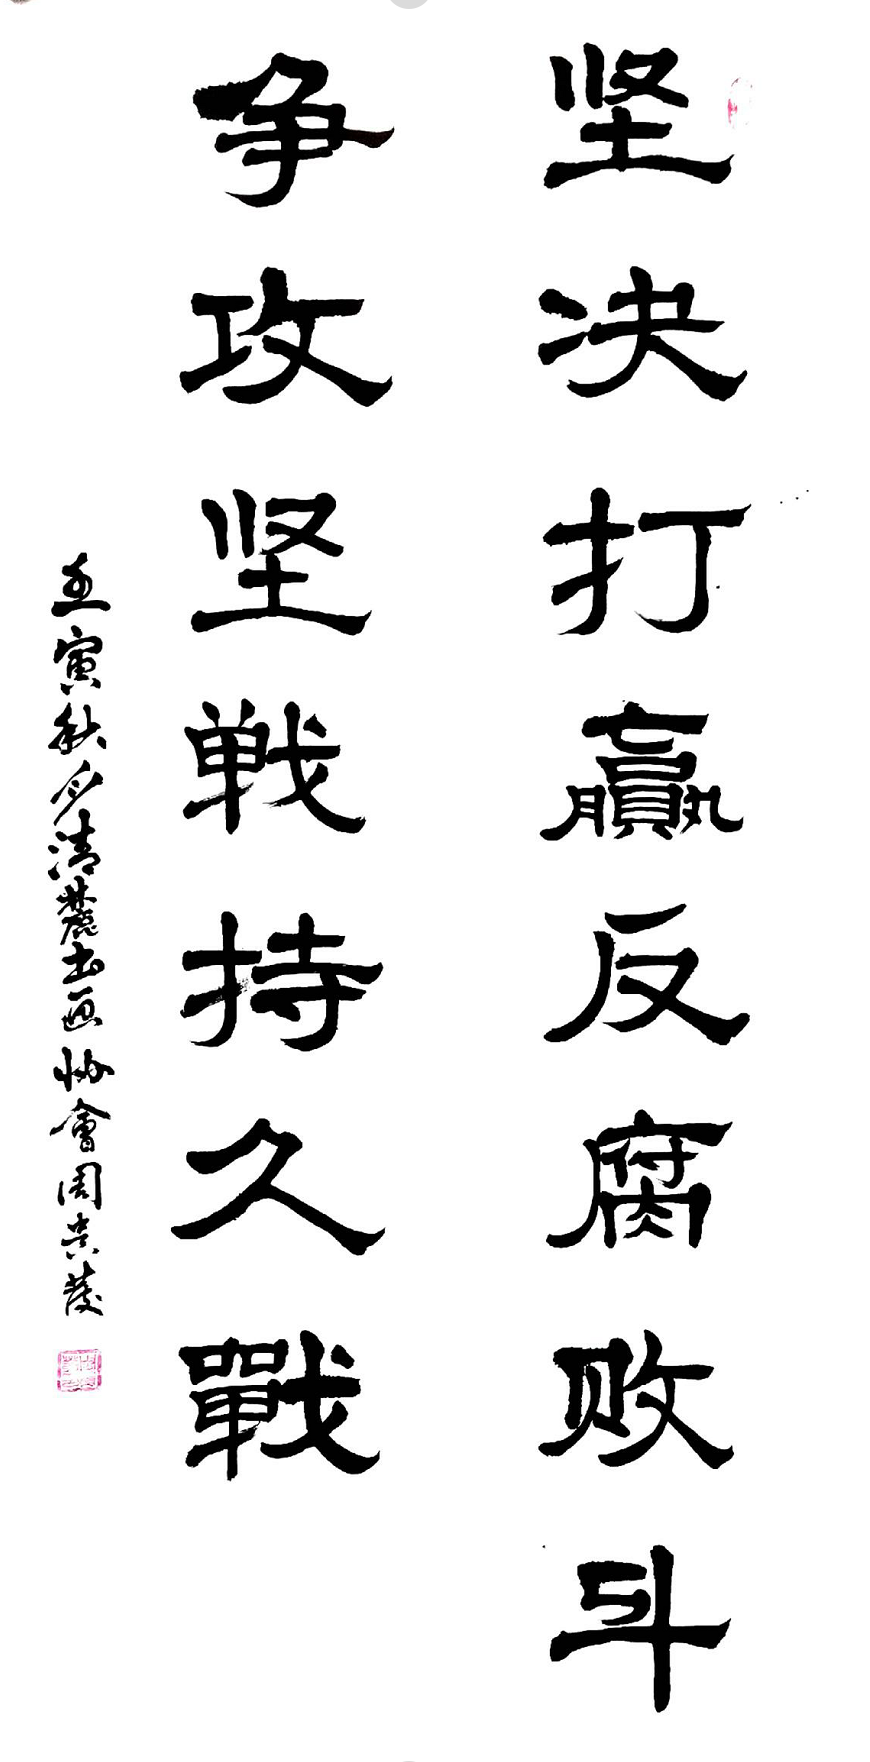 坚决打赢反腐败斗
争攻坚戦持久戰
壬寅秋月清麓书画协會周贵